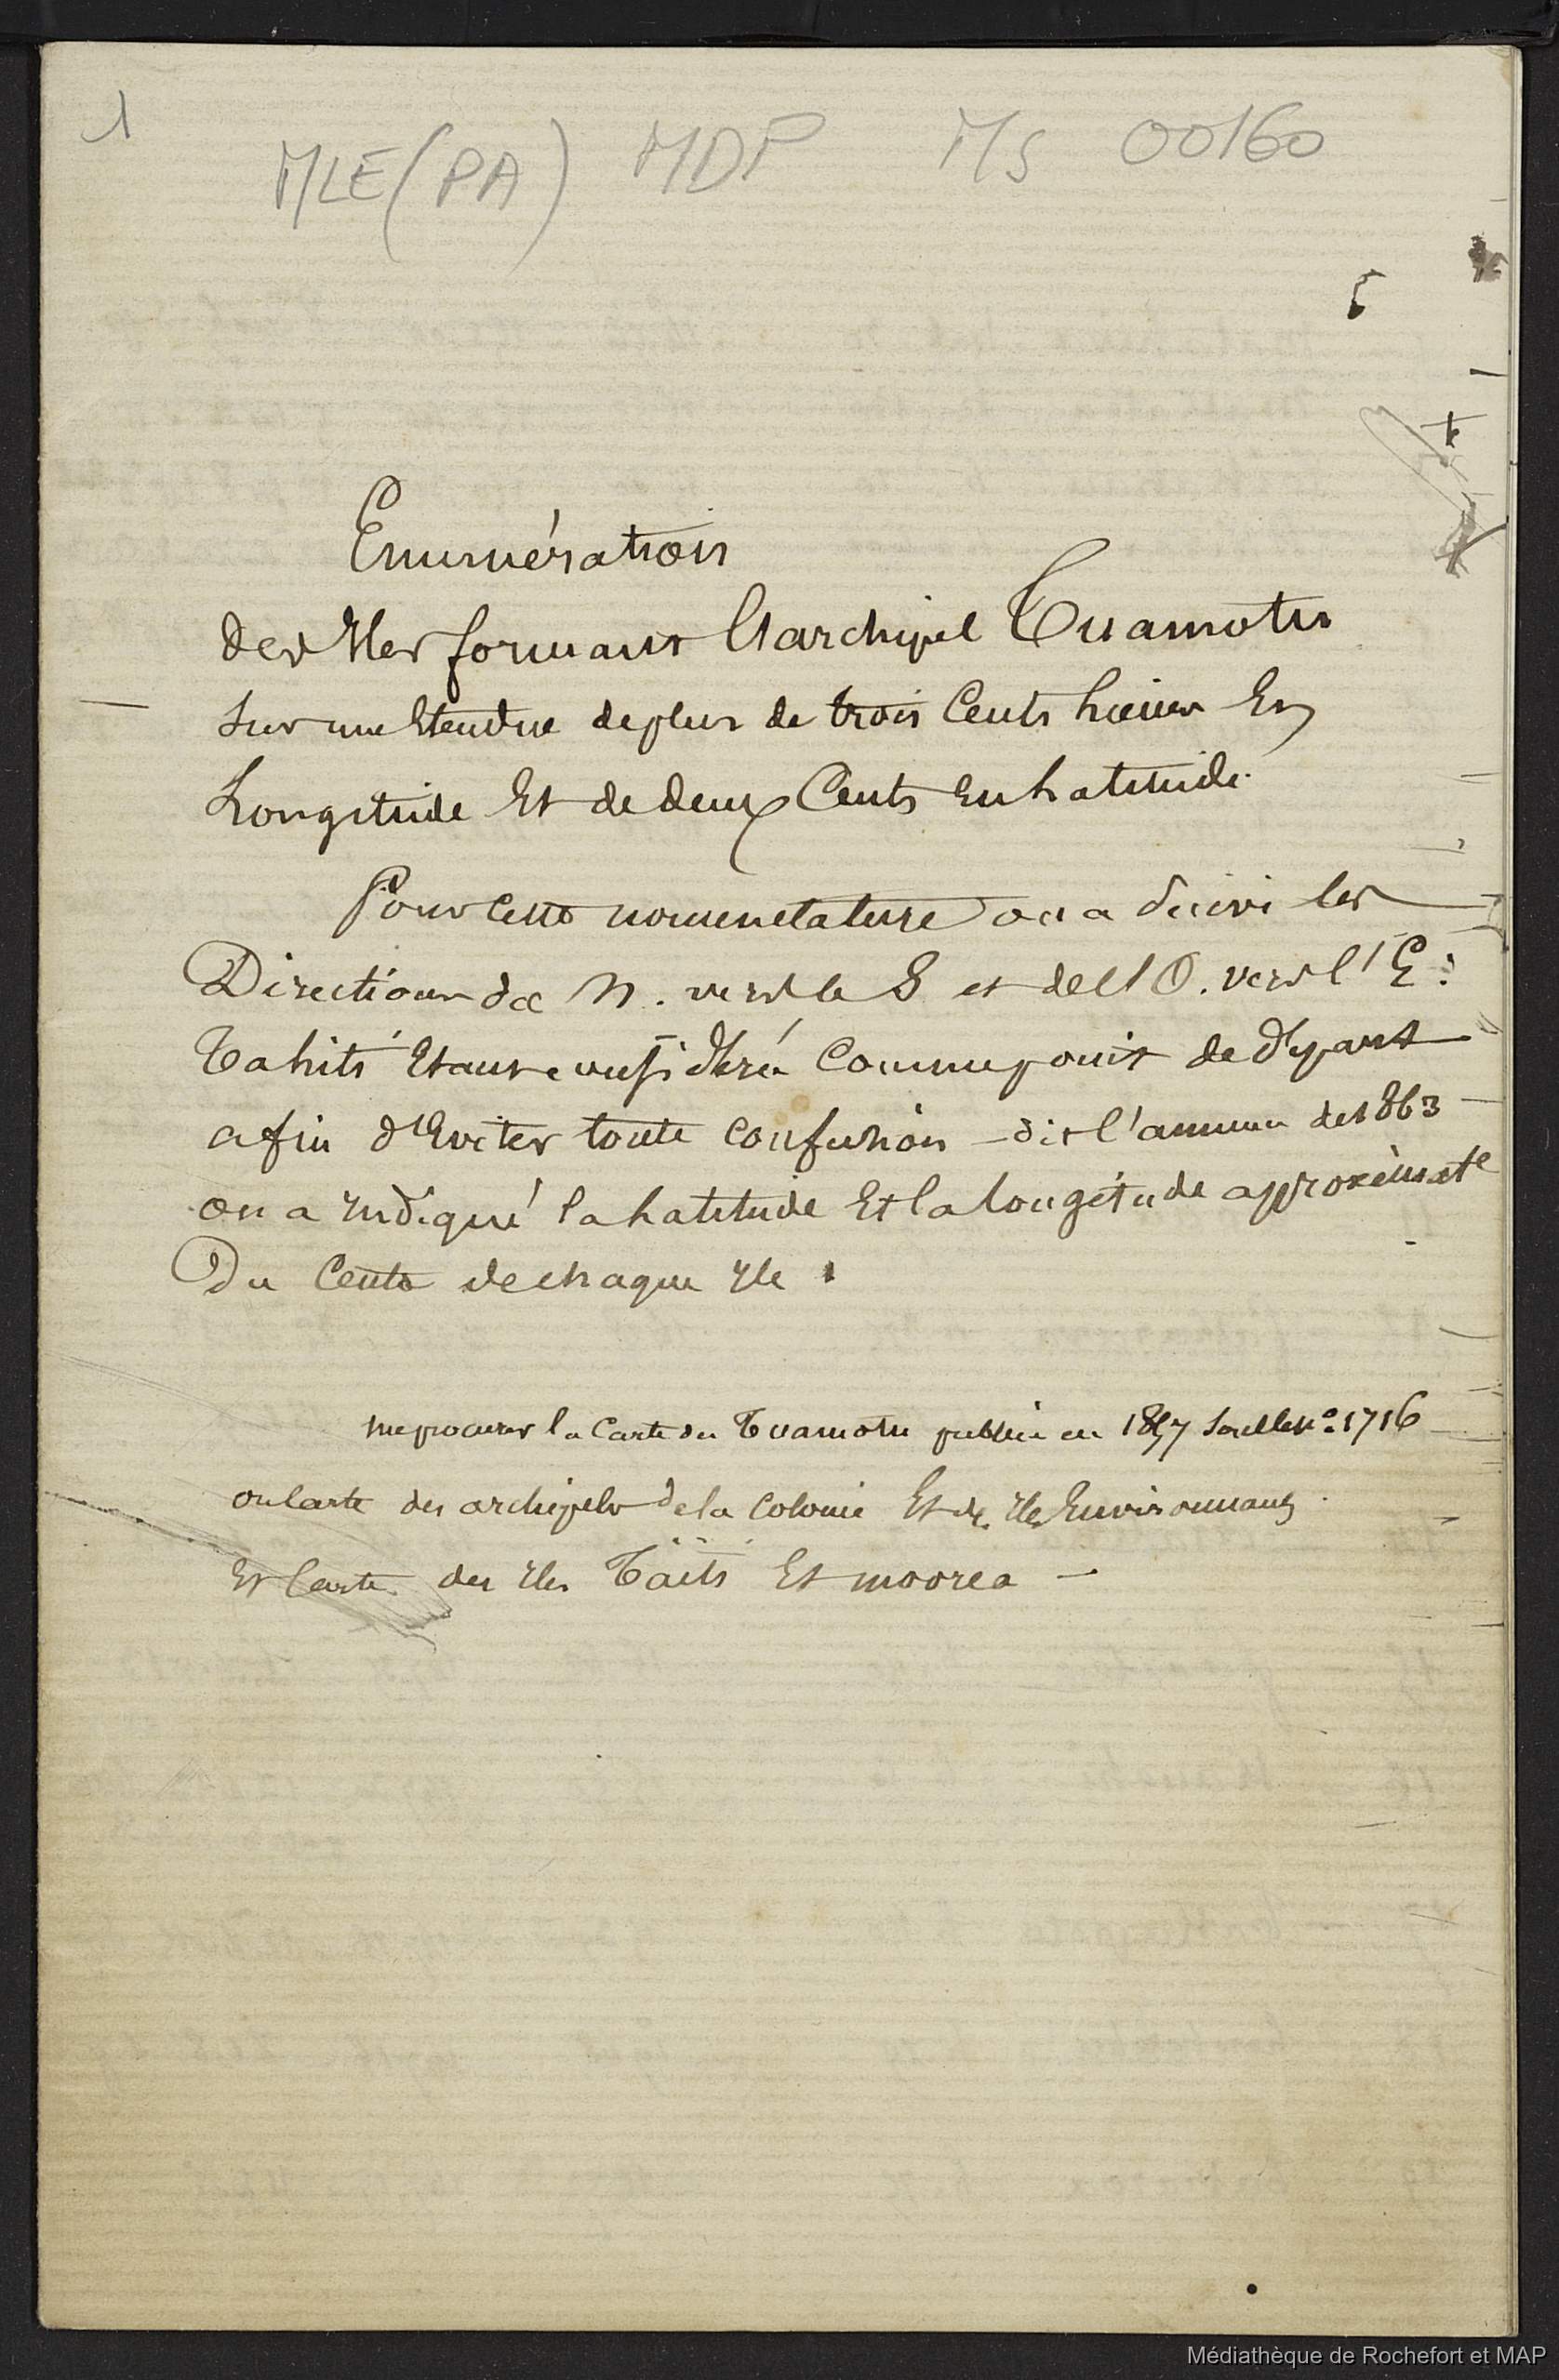 1
MLE(PA) MDP MS 00160
Enumération
des Iles formant l'archipel Tuamotu
sur une Etendue de plus de trois Cents Lieues En
Longitude Et de deux Cents en Latitude.
Pour cette nomenclature on a suivi les
Directions du N. vers le S et de l'O. vers l'E.
Tahiti Etant considéré Comme point de départ
afin d'Eviter toute Confusion - dit l'annuaire de 1863
on a Indiqué la Latitude Et la longitude approximate
Du Centre de chaque Ile.
me procurer la Carte des Tuamotu publiée en 1857 sous le No 1716
ou Carte des archipels de la Colonie Et des Iles Environnants
Et Carte des Iles Taïti Et moorea -
Médiathèque de Rochefort et MAP